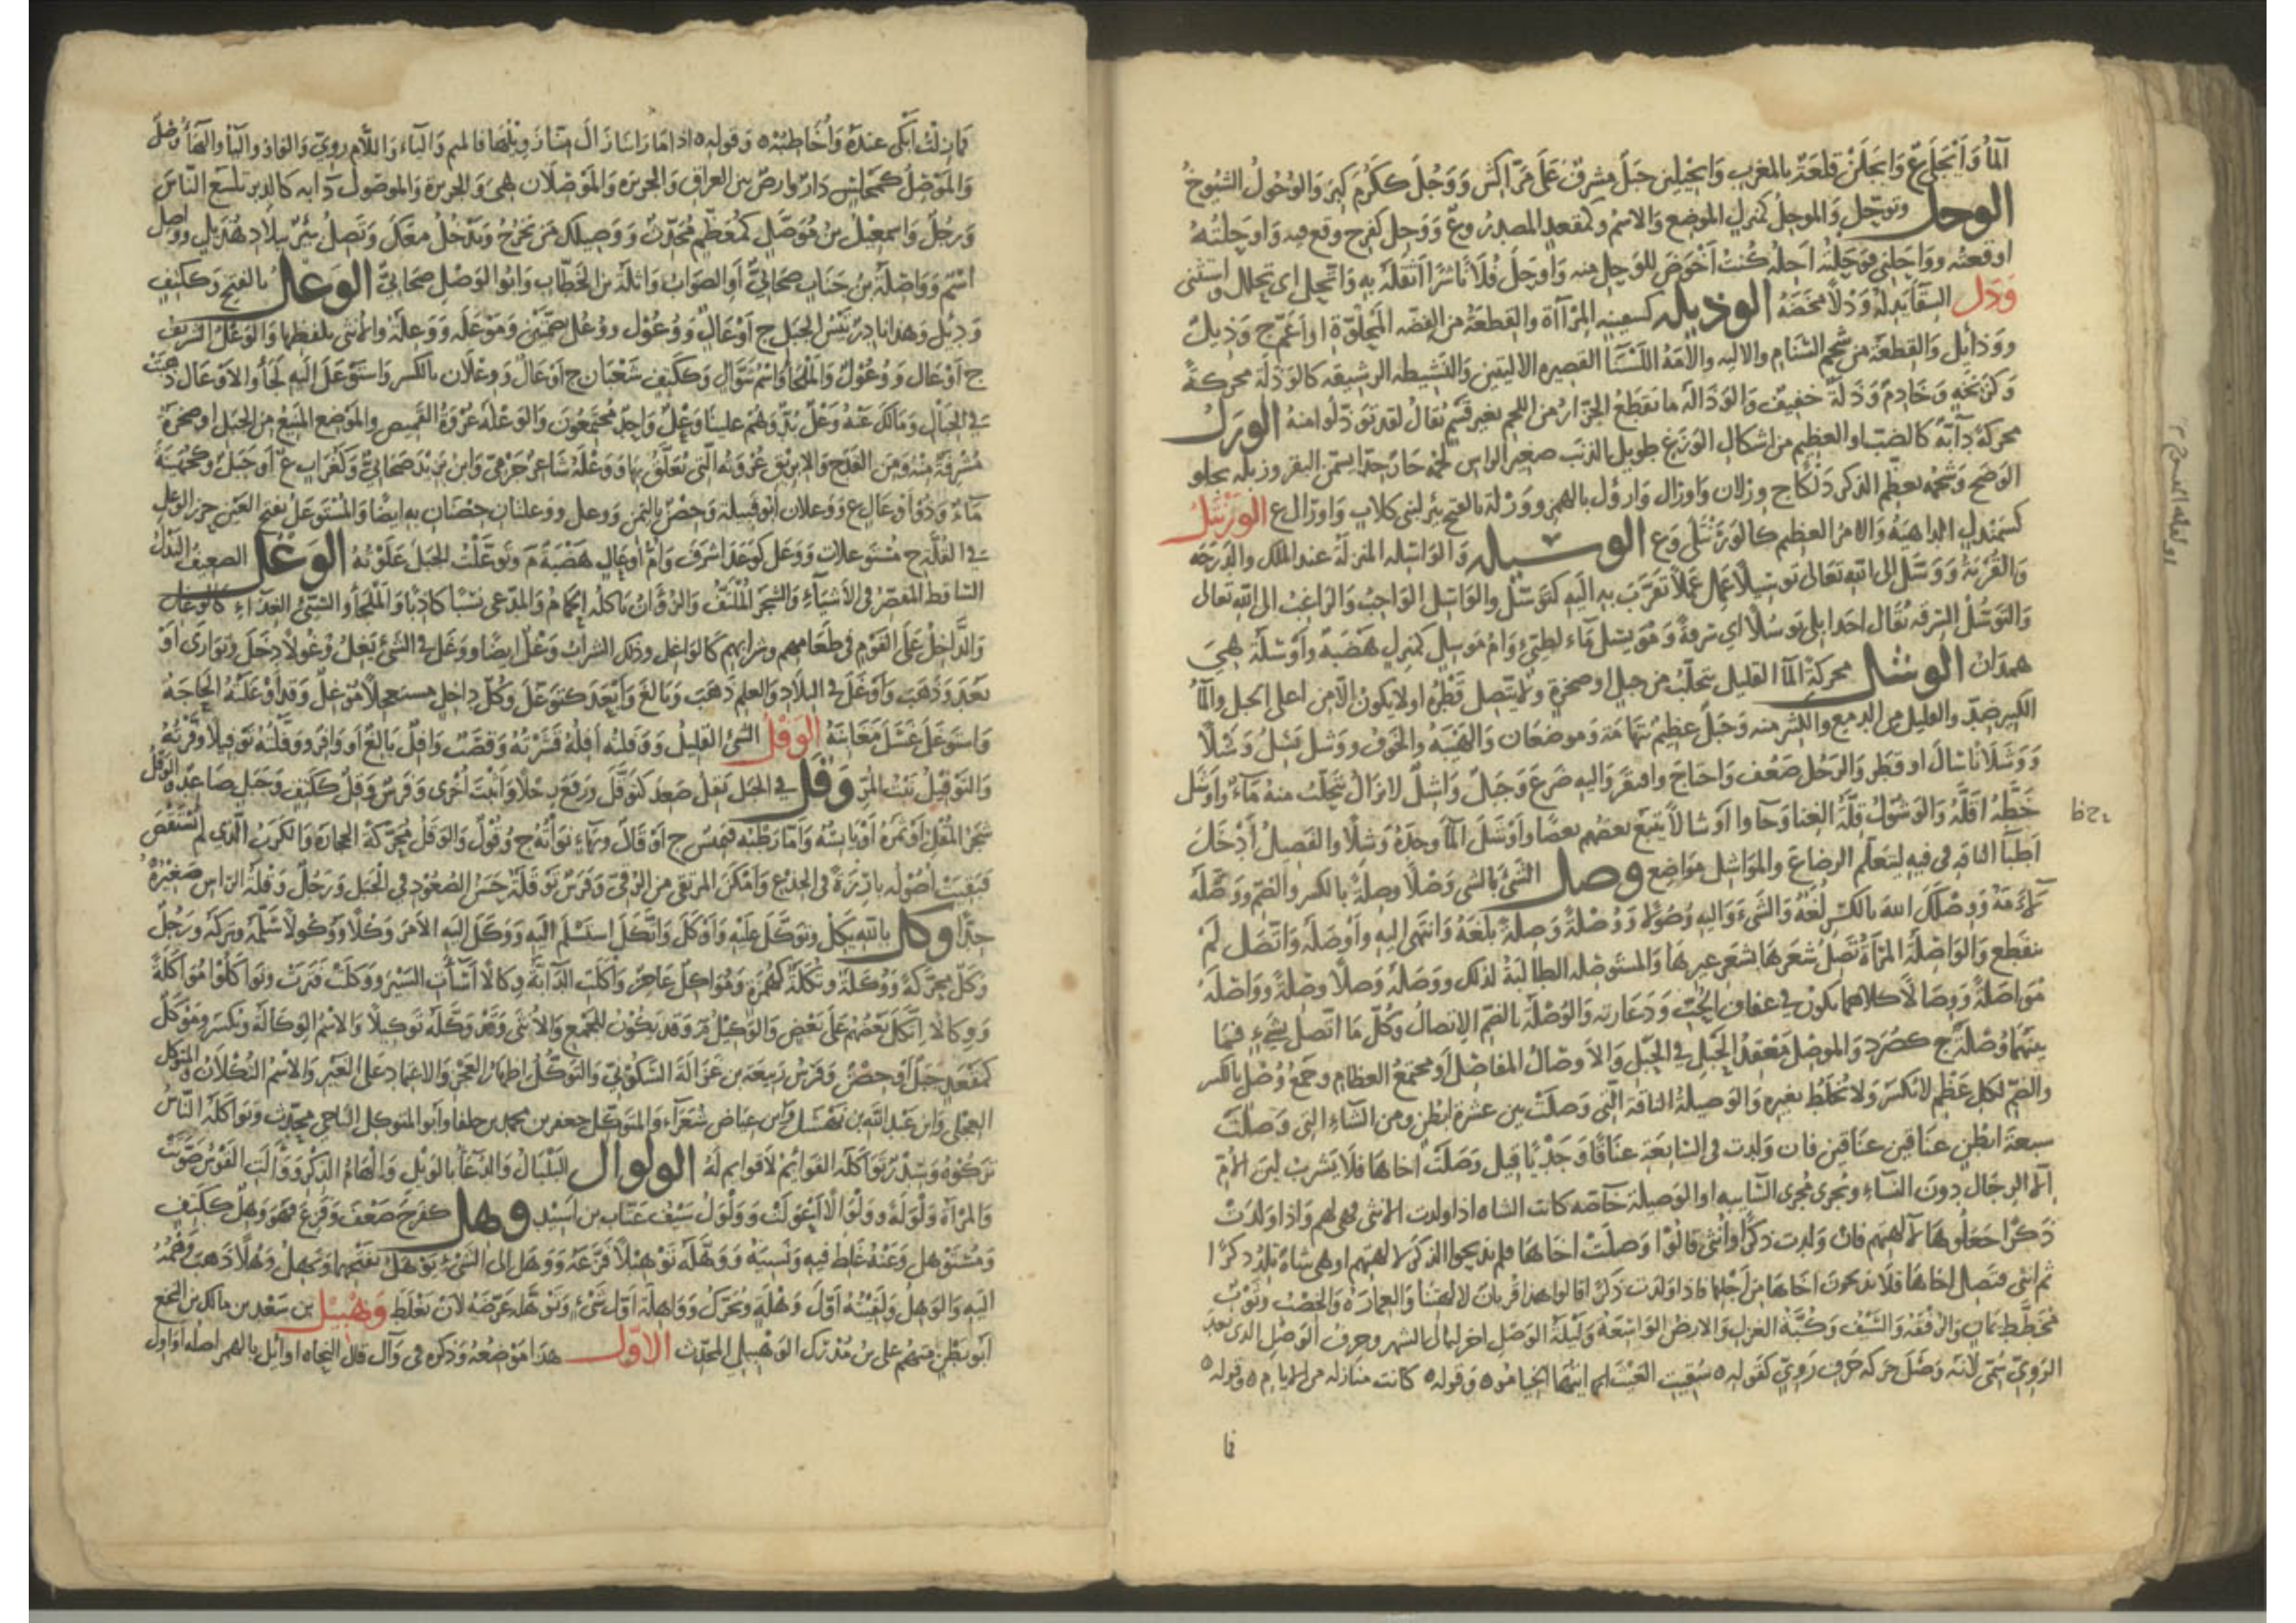 الماء وَايْجَلَى ع وَايجَلَنْ قلعَةٌ بالمغرب وَايجَيلين جَبَلٌ مشرفٌ عَلَى مَرّاكش وَوَجُلَ ككَرُمَ كبِرَ وَالوُجُولُ الشيُوخُ
الوحل وتوحّل وَالموحِلُ كمنزِل الموضع وَالاسمُ وكمقعد المصدرُ وع وَوَحِلَ كفرح وقع فيه وَاوحَلتُهُ
اوقعتُه وواحَلنى فوحَلتُهُ احِلُه كُنتُ اَخْوَضَ للوَحل منه وَاوحَلَ فُلانًا شرًا اَثقلَهُ به وَاتَّحل اى تحلل واستثنى
وَدَل السقاءَ يدِلُهُ وَدْلًا مخَضَهُ الوذيله كسفينه المِرْآة والقطعَةُ من الفضه المجلوّة او اعَمّ ج وَذيلٌ
ووَذائل وَالقطعَةُ من شحم السَنام والاليه والاَمَةُ اللَسْنَآ القصيره الاليتين وَالنشيطه الرشيقه كالوَذَلَة محركةً
وَكزنخه وَخادمٌ وَذلةٌ خفيفٌ وَالوَذالة ما يقطع الجزّارُ من اللحم بغير قَسْم يُقالُ لقد توذّلوا منه الورَلُ
محركة دابّة كالضبّ او العظيم من اشكال الوَزغ طويل الذنب صغير الراس لحمُه حارٌ جدّا يسمّن بقوة وزبله يجلو
الوَضَح وَشحمُه يعظم الذكر دَلكًا ج وِرلان وَاورال وَارؤل بالهمز ووَرْلة بالفتح بئر لبنى كلاب وَاورال ع الوَرَنْتَلُ
كسمندل الداهيَةُ وَالامرُ العظيم كالوَرَنْتَلَى وَع الوسيله وَالوَاسِله المنزلَة عند الملك والدَرَجَه
وَالقُربَةُ وَوَسّل الى الله تعالى توسيلًا عَمِلَ عَمَلًا تقرّبَ به اليه كتَوَسّلَ والوَاسِل الوَاجِبُ وَالرَاغبُ الى الله تعَالى
وَالتوَسُّلُ السَرقه يُقَال اخذ ابلى تَوسُّلًا اى سرقةً وَمُوَيسِل ماء لطيّئ وَامُّ مَوسِل كمنزِل هَضَبَة وَاَوْسَلَة هيَ
همدَان الوشَل محركةً الماء القليل يتحلّب من جبل او صخرة وَلا يتّصل قَطْرُه او لا يكون الّا من اعلى الجبل والماءُ
الكثير ضدٌّ والقليل من الدمع والكثير منه وَجَبَلٌ عظيمٌ بتهَامَة وَموضعَان وَالهَيْبَهُ والخوف ووَشل يَشِلُ وَشْلًا
وَوَشَلَانًا سالَ او قطَر وَالرجُل ضعُف وَاحتاج وافتقر وَاليه ضرَع وَجَبلٌ وَاشِلٌ لا يزالُ يتحلّبُ منهُ مَاءٌ وَاَوشَل
حَظّهُ اَقَلَّهُ وَالوَشولُ قلّةُ الغِنا وَجَاوا اَوشالًا يتبَعُ بَعضُهم بعضًا واَوْشَلَ الماءَ وجدَهُ وَشَلًا والفصيلَ اَدْخَلَ
اَطْبَآ الناقه فى فيه ليتعلّم الرضاعَ وَالمواشِل مَواضِع وصل الشَئَ بالشئ وَصْلًا وصِلةً بالكسر والضم ووَصّلَه
لَاءَمَهُ وَوَصِلَكَ الله بالكسر لُغَةٌ وَالشَئَ وَاليه وُصُولًا وَوُصْلَةً وَصِلةً بَلغَهُ وَانتهى اليه وَاَوصَلَهُ وَاتّصَل لَم
ينقطع وَالوَاصِلَةُ المرْأَةُ تَصِلُ شعَرهَا بشعَر غيرهَا وَالمستوصِلَة الطالبَةُ لذلك ووَصَلهُ وَصلًا وصِلَةً ووَاصَلَهُ
مُوَاصَلَةً وَوِصَالًا كلاهما يكون فى عفاف الحُبّ وَدَعَارته وَالوُصْلَة بالضم الاتصالُ وَكُلُّ مَا اتّصل بشئٍ فمَا
بينَهُمَا وُصْلةٌ ج كصُرَدٍ وَالموصِل مَعْقِدُ الحَبْل فى الحَبْل وَالاَوصَالُ المفَاصِلُ اَو مجتَمَعُ العظامِ وجَمعُ وُصْلٍ بالكسر
والضمّ لكلّ عَظْمٍ لا يُكسَرُ وَلا يُخلَطُ بغيره وَالوَصيلةُ الناقة الّتى وَصَلَتْ بين عشرة ابطنٍ ومن الشاءِ التى وَصَلَتْ
سبعَة ابطنٍ عنَاقَين عنَاقَين فان وَلدت فى السَابعَة عنَاقًا وَجَدْيًا قيل وَصَلتْ اخاها فلا يَشربُ لبَنَ الاُمّ
الّا الرجَال دون النسَاءِ وَتجرى مُجرى السائبه او الوَصيلة خَاصّه كانت الشاه اذا ولدت الانثى فهى لهم وَاذا وَلدَتْ
ذَكَرًا جَعَلُوهُ لآلهتهم فان وَلدت ذَكرًا وَانثى قالوا وَصلَتْ اخاها فلم يذبحوا الذكر لآلهتهم او هى شاة تلدُ ذكرًا
ثم انثى فتصِل اخاها فلا يذبحونَ اخاها من اَجْلها وَاذا ولدت ذكرًا قالوا هذا قربان لآلهتنا وَالعِمارَة وَالخِصْبُ وَثوبٌ
مُخَطّطٌ يمَانٍ وَالرُفقَةُ وَالسَيْفُ وَكُبّةُ الغزل وَالارضُ الوَاسعَةُ وَليْلَةُ الوَصْل اخر ليَالى الشهر وحرفُ الوَصل الذى بعدَ
الرَوِىّ سُمّى لانه وَصَلَ حركةَ حَرفِ رَوِيّ كقوله سُقِيتِ الغيثَ ايتهَا الخِيَامُو وَقوله كانت منازله من الايام وقوله
فما
فما زلتُ اَبْكى عندَهُ وَاُخَاطبُهْ وَقوله
وَالمَوْصِلُ كمجلِسٍ دَارٌ وارضٌ بين العراق والجزيره وَالمَوْصلَان هى وَالجزيرة والموصُول دابّه كالدبر تلسَع النّاسَ
وَرجُلٌ وَاسمعيْلُ بن مُوَصَّلٍ كمُعَظَّمٍ مُحَدِّثٌ وَوَصيلك مَن يَخرُجُ وَيَدْخُلُ معَكَ وَتَصِلُ بئرٌ ببلَاد هُذَيْلٍ وَوَاصِلُ
اسْمٌ وَوَاصِلةُ بنُ جنَاب صحَابىٌّ اَو الصوَابُ وَاثلةُ بن الخَطّاب وَابُو الوَصْلِ صحَابىٌّ الوَعْل بالفتح وَككتِفٍ
وَدُئِل وَهذا نادرٌ تَيْسُ الجبَل ج اَوْعالٌ وَوُعُوْل ووُعُلٌ بضَمَّتَين وَمَوْعَلَه وَوَعِلَةٌ والانثى بلفظها وَالوَعْلُ الشريفُ
ج اَوْعال وَوُعُوْلٌ وَالمَلجَأُ وَاسْمُ شَوَّال وَككَتِفٍ شعْبَان ج اَوْعال وَوِعْلَان بالكسر وَاستَوْعَلَ الَيْه لَجَأَ والاَوْعَال ذَهَبَتْ
فى الجبَال وَمَا لَكَ عَنْهُ وَعْلٌ بُدٌّ وَهُمْ علينَا وَعْلٌ وَاحدٌ مجتَمِعُونَ وَالوَعْلَةُ عُرْوَةُ القَميص والمَوْضِعُ المَنيعُ من الجبَل او صَخْرَةٌ
مشرفَةٌ منهُ وَمن القدَح وَالابريق عُرْوَتهُ الّتى يُعَلّقُ بهَا وَوَعْلَةُ شاعرٌ جَرْمىٌّ وَابن يزيد صَحَابىٌّ وَكغُرَاب ع اَو جَبَلٌ وَكجُهَيْنَةَ
مَاءٌ وَذُو اَوْعَال ع وَوَعْلان اَبُو قبيلة وَحِصْنٌ باليَمَن وَوَعل ووَعلتَان حِصْنَان به ايضًا وَالمُسْتَوعَلُ بفتح العَيْن حِرزُ الوَعِل
فى القلّة ج مستوعلات وَوَعَل كوَعَدَ اَشرَفَ وَاُمُّ اَوعَالٍ هَضَبةٌ م وَتَوَعَّلْتُ الجبَل عَلَوْتهُ الوَغْل الضعيفُ النَذْلُ
السَاقط المقصّرُ فى الاَشيَاءِ وَالشجَرُ المُلْتَفُّ وَالزُؤَانُ يَاكلُه الحَمَامُ وَالمدّعى نسَبًا كاذبًا وَالمَلجَأُ وَالسيِّئُ الغِذَاءِ كالوَغِل
وَالدَّاخلُ عَلَى القَوْم فى طَعَامهم وشرابهم كالوَاغل وذلك الشرَابُ وَغْلٌ ايضًا ووَغَل فى الشئ يَغِلُ وُغُولًا دخَل وَتوَارى اَوْ
بَعُدَ وَذَهَبَ وَاَوْغَلَ فى البلَاد وَالعلم ذَهَبَ وَبَالَغَ وَاَبْعَدَ كتَوَغّلَ وَكُلُّ داخلٍ مستعجلًا مُوغِلٌ وَقد اَوغَلَتْهُ الحَاجَةُ
وَاسْتَوغَلَ غَسَلَ مَغَابنَهُ الوَفْلُ الشئُ القليلُ وَوَفلتُه اَفِلُهُ قشَرْتهُ وَقصَبٌ وَافلٌ بالغٌ اَو وَافرٌ وَوَفّلتُهُ تَوفيلًا وَفّرْتهُ
وَالتَوفيلُ نَبتُ المُرّ وَقَل فى الجَبل يَقِلُ صَعِدَ كتَوَقّلَ وَرفَعَ رجْلًا وَاَثبَتَ اُخْرَى وَفَرَسٌ وَقلٌ ككَتِفٍ وَجَبَلٍ صَاعدٌ وَالوَقْلُ
شجَرُ المُقْل اَوْ ثمَرُهُ اَوْ يَابسُهُ وَاَمّا رَطْبُه فبَهْشٌ ج اَوْقَالٌ وبهَاءٍ نوَاتُهُ ج وُقُولٌ وَالوَقَلُ مُحَرّكَة الحجَارَةُ وَالكَرَبُ الّذى لم يُسْتَقْصَ
فبَقيَتْ اُصُوله بارزَةً فى الجذْع وَاَمْكَنَ المُرتَقى مِن الرُقىّ وَفَرَسٌ تَوَقَّلَة حَسَنُ الصُعُوْد فى الجَبَل وَرَجُلٌ وَقْلَةُ الرَاس صَغيْرَهُ
جدًّا وَكَل باللّٰه يَكِلُ وتوَكّلَ عَلَيْه وَاَوْكَلَ وَاتَّكَلَ استَسْلَم الَيه وَوَكَلَ الَيه الاَمرَ وَكْلًا وَوُكُولًا سَلَّمَه وَتَرَكَه وَرَجُلٌ
وَكَلٌ محَرّكَة وَوُكَلَةٌ وَتُكَلَةٌ كهُمَزَة وَمُوَاكلٌ عَاجزٌ وَاكَلَت الدَّابَّةُ وِكَالًا اَسَاءَتِ السَيْرَ وَوَكَلَت فَتَرَتْ وتَوَاكَلُوا مُوَاكَلَةً
وَوِكَالًا اِتّكَلَ بَعْضُهُم عَلَى بَعْضٍ وَالوَكيْلُ م وَقد يَكُوْنُ للجَمْع وَالاُنثَى وَقَدْ وَكّلَه تَوكيْلًا وَالاسْمُ الوَكَالَة وَيُكسَر وَمَوْكَلٌ
كمَقعَدٍ جَبَلٌ اَو حِصْنٌ وَفَرَسُ رَبيعَة بن غزَالة السَكُوْنىِّ وَالتَوَكُّلُ اِظهَارُ العَجْز وَالاعتمَاد عَلَى الغَيْر وَالاسْمُ التُكْلَانُ وَالمتوَكّل
العِجْلى وَابن عَبدِ اللّٰه بن نَهْشَل وَابن عيَاض شُعَرَآء وَالمتَوَكّل جعفر بن محمد من خلفا وَاَبو المتوكل الناجى محدّث وَتوَاكَلَه النّاسُ
ترَكُوْهُ الوَلْوَال البَلْبَالُ وَالدعَاءُ بالوَيْل وَالهَامُ الذكر وَوَلْوَلَت القَوْسُ صَوّتَتْ
وَالمَرْاَةُ وَلْوَلَةً وَوَلْوَالًا اَعْوَلَتْ وَوَلْوَلُ سَيْفُ عَتّاب بن اَسيْدٍ وَهل كفَرِحَ ضَعُفَ وَفَزِعَ فهُوَ وَهِلٌ ككَتِفٍ
وَمُسْتَوهِلٌ وَعَنْهُ غَلِط فيه وَنَسِيَهُ وَوَهّلَه تَوْهيْلًا فَزّعَهُ وَوَهَل الى الشَئ يَوْهَلُ بفَتْحهمَا وَيَهِلُ وَهْلًا ذَهَبَ وَهْمُهُ
الَيْه وَالوَهِلُ وَلَقيتُهُ اَوَّلَ وَهْلةٍ وَيُحرّكُ وَوَاهلَةٍ اَوّل شَئٍ وَتوَهّلَه عَرّضَهُ لاَنْ يَغْلَطَ وَهْبيْل بن سَعْد بن مَالك بن النَخَع
اَبُو بَطْنٍ منهُم على بن مُدْرِك الوَهْبيلى المحدّث الاوّل هذَا مَوضِعُهُ وَذكره فى وَآل قال النحَاه اوَائل بالهمز اصله اوَاوِل